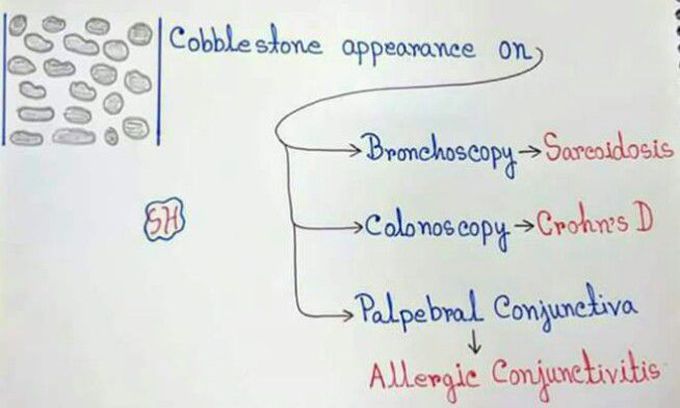 Cobblestone appearance on
Bronchoscopy → Sarcoidosis
SH
Colonoscopy → Crohn's D
Palpebral Conjunctiva
↓
Allergic Conjunctivitis